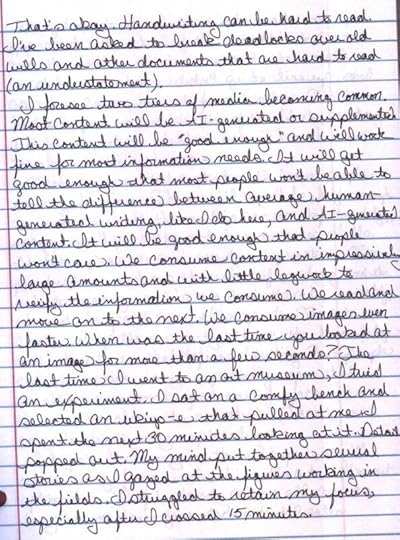 That's okay. Handwriting can be hard to read.
I've been asked to break deadlocks over old
wills and other documents that are hard to read
(an understatement).
I foresee two tiers of media becoming common.
Most content will be AI-generated or supplemented.
This content will be "good enough" and will work
fine for most information needs. It will get
good enough that most people won't be able to
tell the difference between average, human-
generated writing, like I do here, and AI-generated
content. It will be good enough that people
won't care. We consume content in impressively
large amounts and with little legwork to
verify the information we consume. We read and
move on to the next. We consume images even
faster. When was the last time you looked at
an image for more than a few seconds? The
last time I went to an art museum, I tried
an experiment. I sat on a comfy bench and
selected an ukiyo-e that pulled at me. I
spent the next 30 minutes looking at it. Detail
popped out. My mind put together several
stories as I gazed at the figures working in
the fields. I struggled to retain my focus,
especially after I crossed 15 minutes.